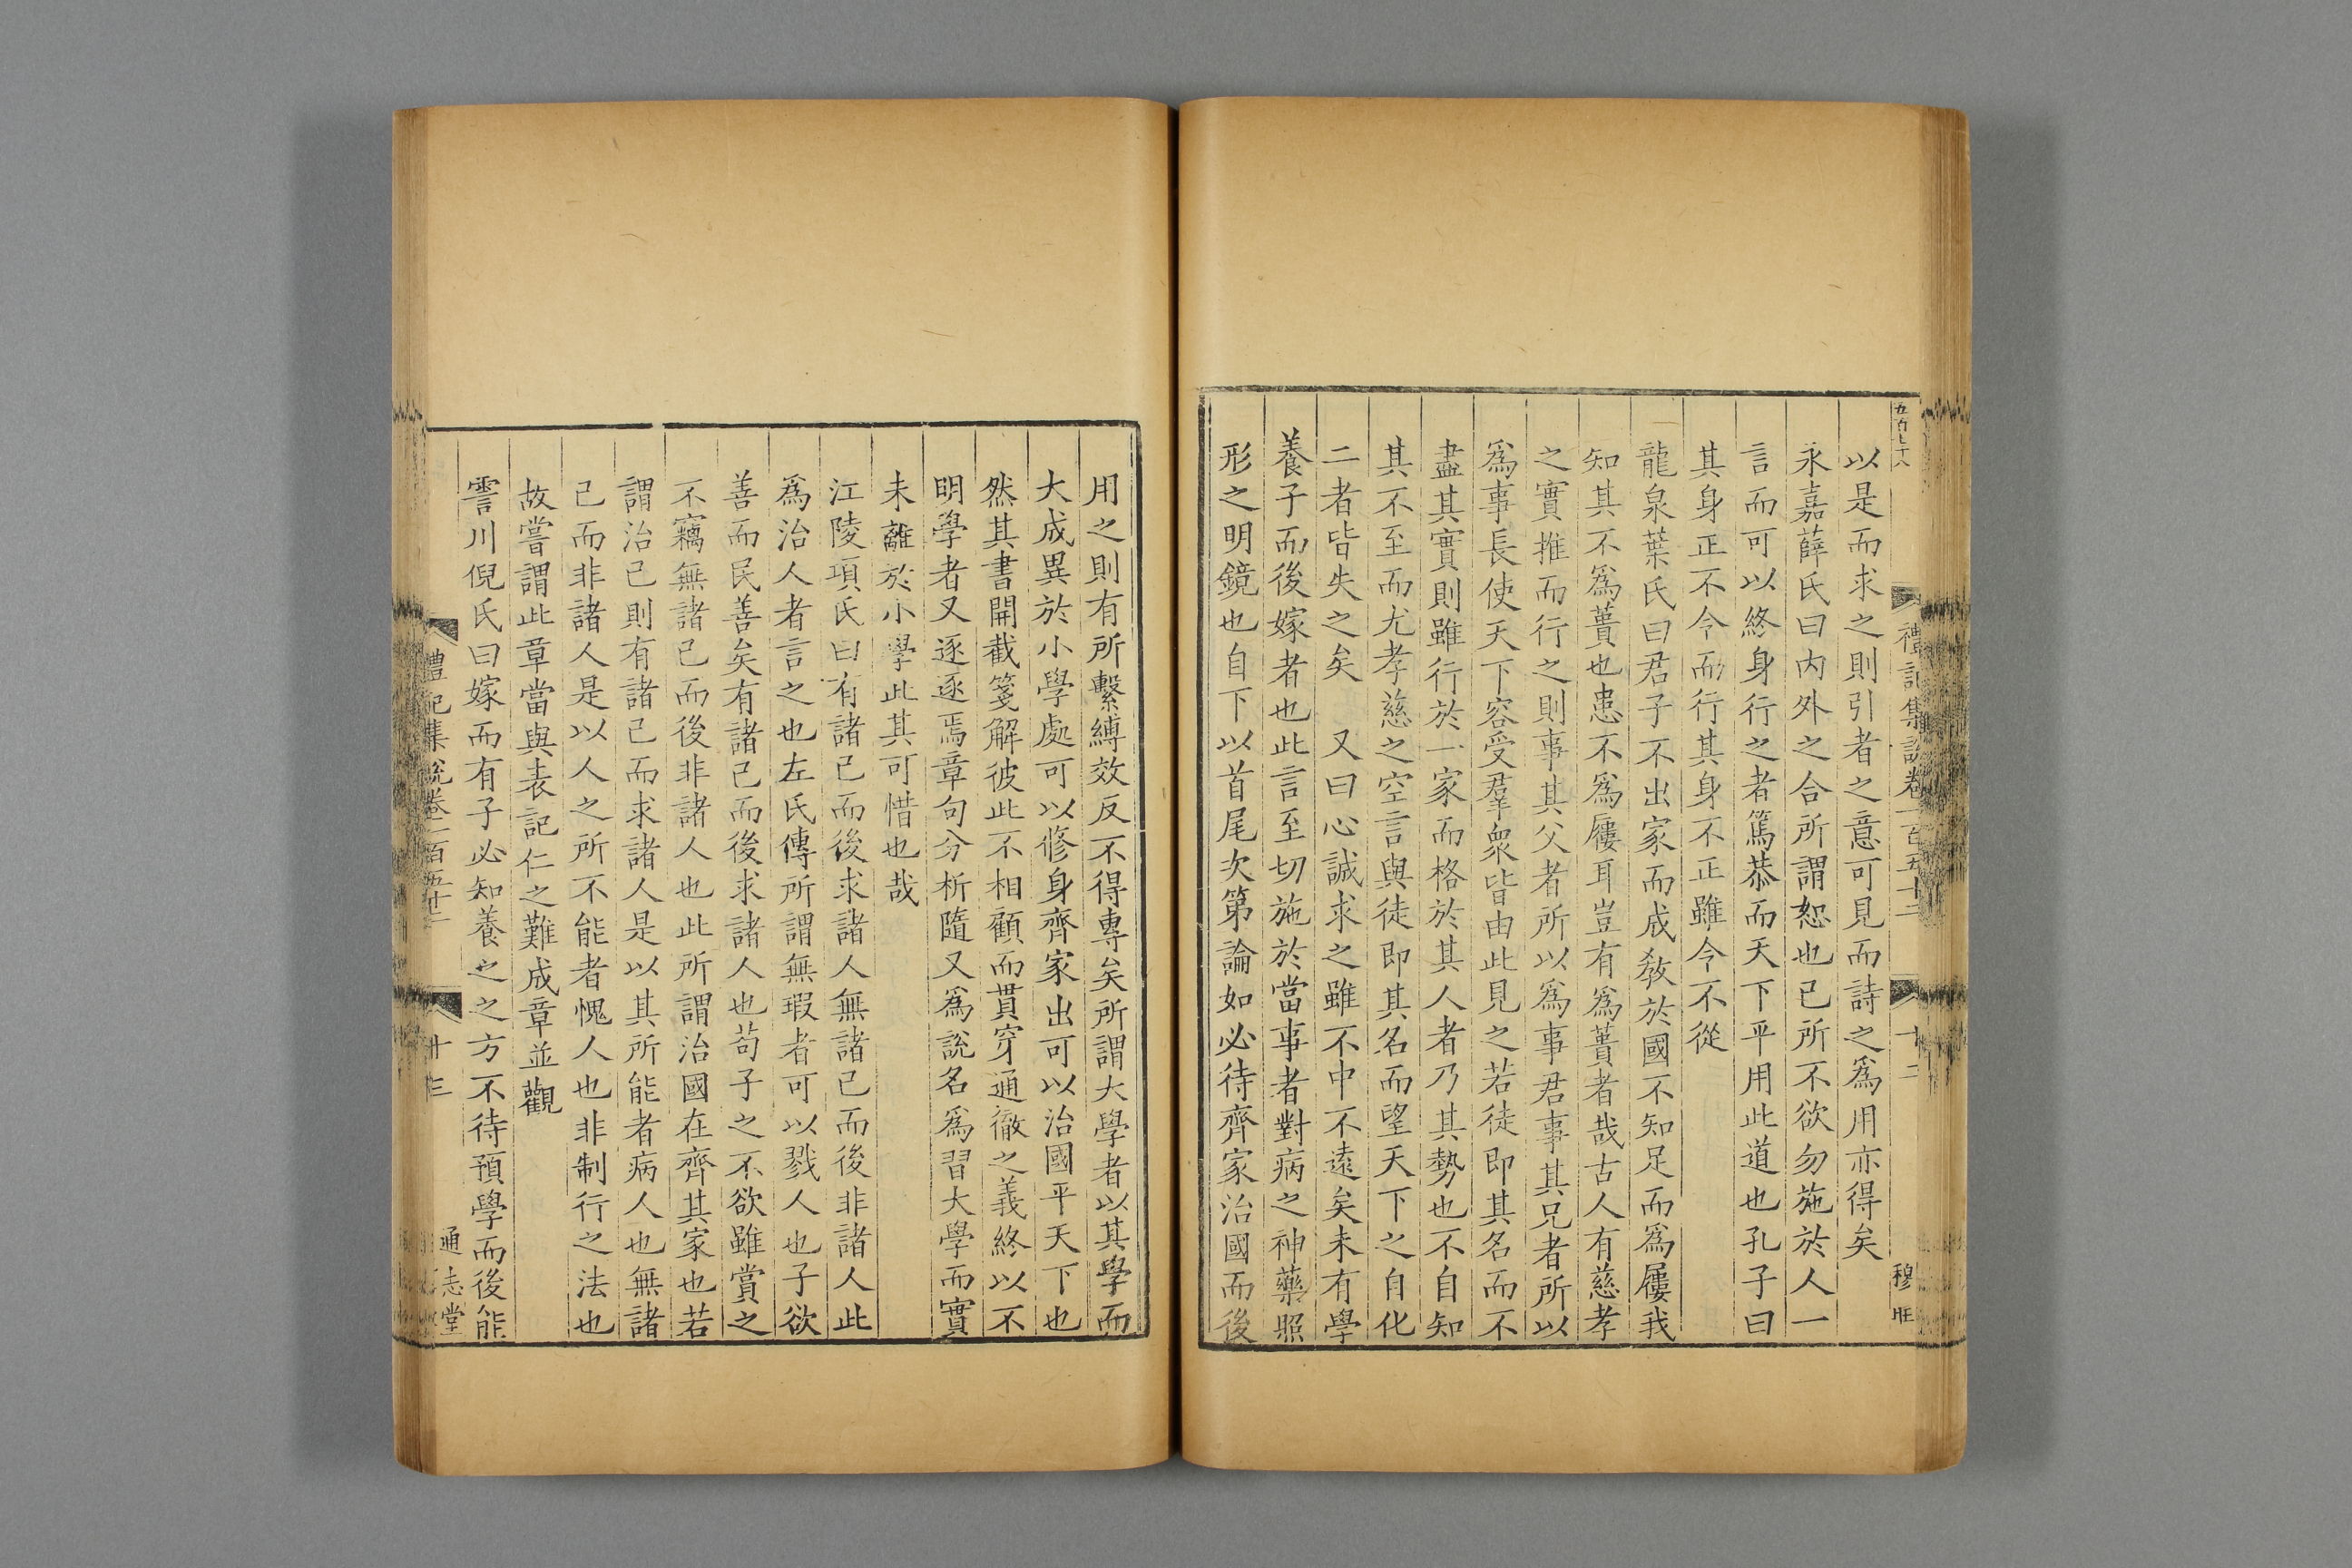 五百七十八
禮記集說卷一百五十二
十二
穆旺
以是而求之則引者之意可見而詩之爲用亦得矣
永嘉薛氏曰內外之合所謂恕也已所不欲勿施於人一
言而可以終身行之者篤恭而天下平用此道也孔子曰
其身正不令而行其身不正雖令不從
龍泉葉氏曰君子不出家而成敎於國不知足而爲屨我
知其不爲蕢也患不爲屨耳豈有爲蕢者哉古人有慈孝
之實推而行之則事其父者所以爲事君事其兄者所以
爲事長使天下容受羣衆皆由此見之若徒即其名而不
盡其實則雖行於一家而格於其人者乃其勢也不自知
其不至而尤孝慈之空言與徒即其名而望天下之自化
二者皆失之矣　又曰心誠求之雖不中不遠矣未有學
養子而後嫁者也此言至切施於當事者對病之神藥照
形之明鏡也自下以首尾次第論如必待齊家治國而後
用之則有所繫縛效反不得專矣所謂大學者以其學而
大成異於小學處可以修身齊家出可以治國平天下也
然其書開截箋解彼此不相顧而貫穿通徹之義終以不
明學者又逐逐焉章句分析隨又爲說名爲習大學而實
未離於小學此其可惜也哉
江陵項氏曰有諸己而後求諸人無諸己而後非諸人此
爲治人者言之也左氏傳所謂無瑕者可以戮人也子欲
善而民善矣有諸己而後求諸人也苟子之不欲雖賞之
不竊無諸己而後非諸人也此所謂治國在齊其家也若
謂治己則有諸己而求諸人是以其所能者病人也無諸
己而非諸人是以人之所不能者愧人也非制行之法也
故嘗謂此章當與表記仁之難成章並觀
霅川倪氏曰嫁而有子必知養之之方不待預學而後能
禮記集說卷一百五十二
十三
通志堂